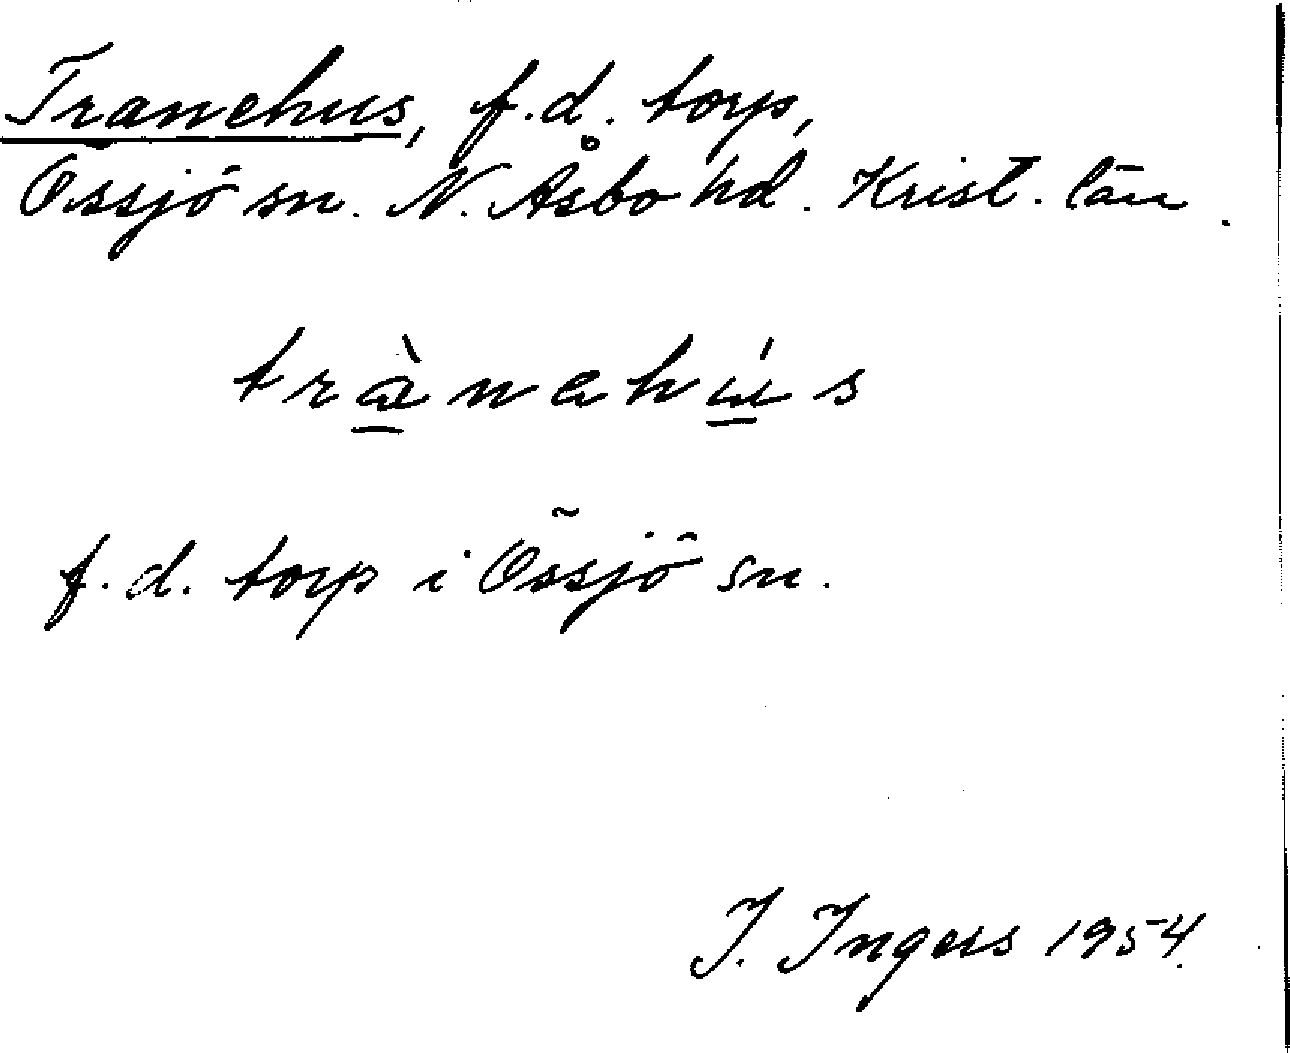 Tranehus, f.d. torp,
Össjö sn. N. Åsbo hd. Krist. län.
trànahús
f.d. torp i Össjö sn.
I. Ingers 1954.